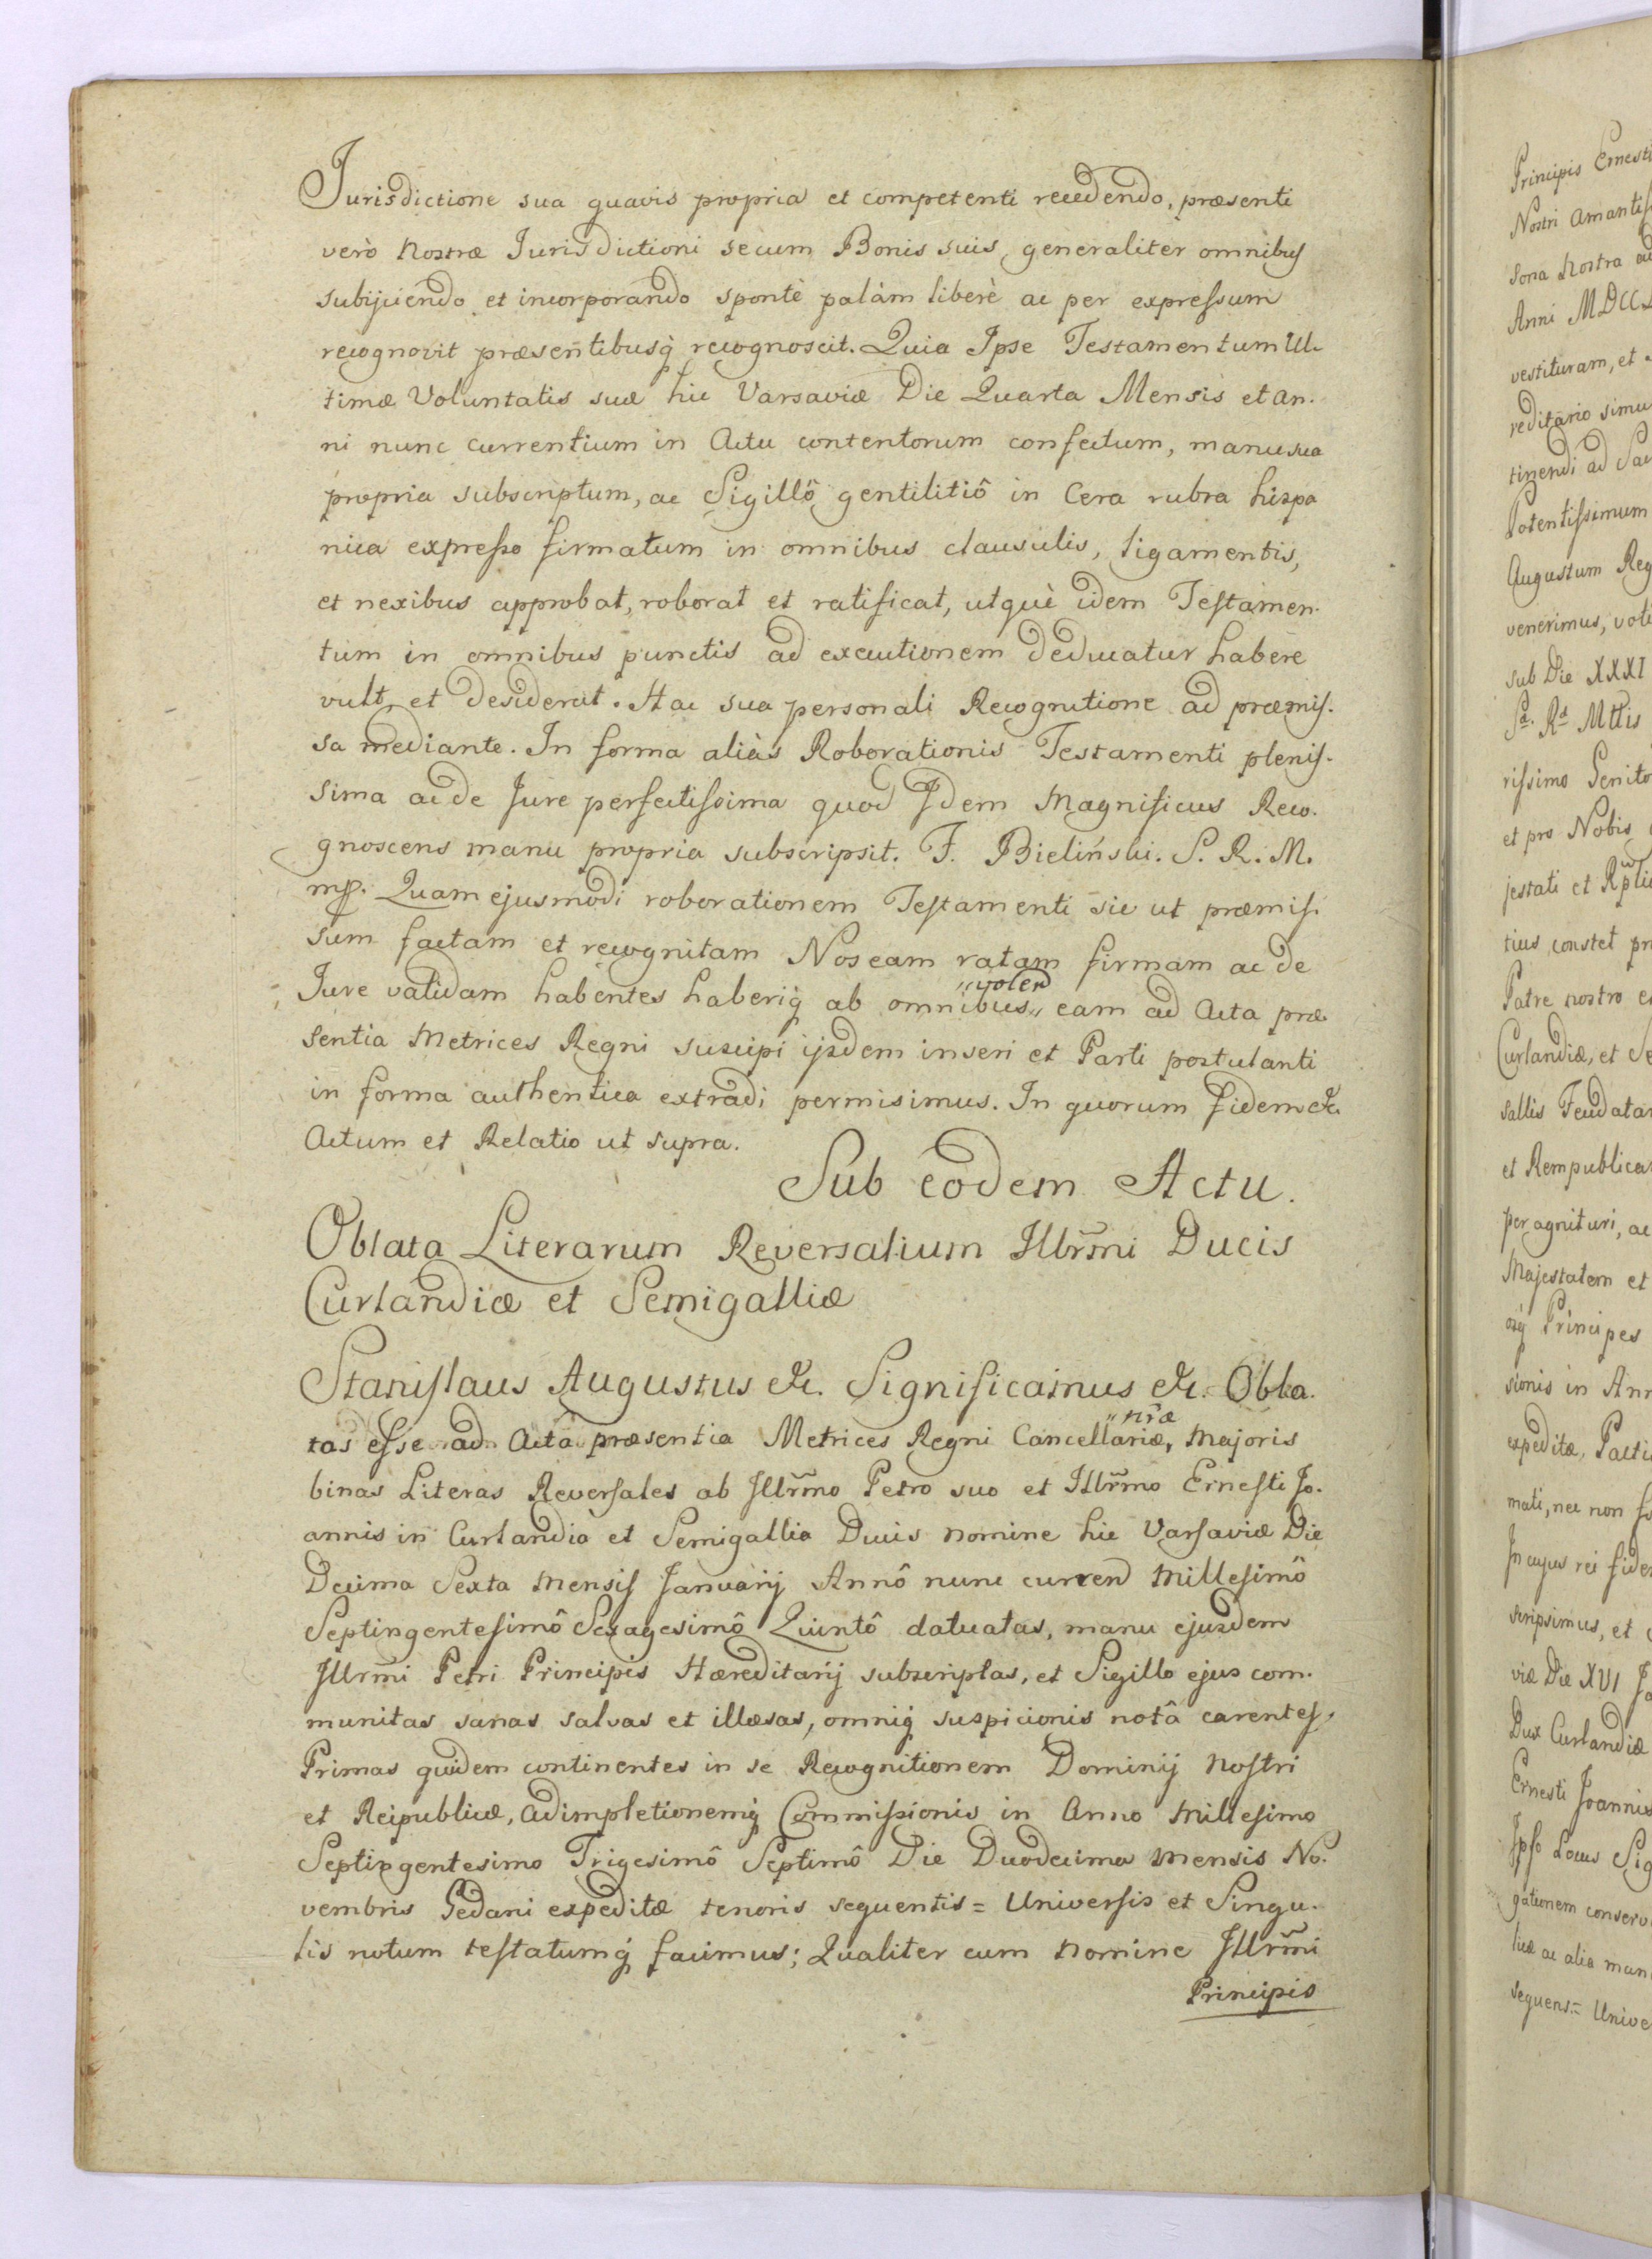 Jurisdictione sua quavis propria et competenti recedendo, præsenti
verò Nostræ Jurisdictioni secum Bonis suis, generaliter omnibus
subijciendo et incorporando spontè palàm liberè ac per expressum
recognovit præsentibusq́ recognoscit. Quia Ipse Testamentum Ul-
timæ Voluntatis suæ hic Varsaviæ Die Quarta Mensis et An-
ni nunc currentium in Actu contentorum confectum, manu sua
propria subscriptum, ac Sigillô gentilitiô in Cera rubra hispa
nica expresso firmatum in omnibus clausulis, ligamentis,
et nexibus approbat, roborat et ratificat, utquè idem Testamen-
tum in omnibus punctis ad executionem deducatur habere
vult, et desiderat. Hac sua personali Recognitione ad præmis-
sa mediante. In forma aliàs Roborationis Testamenti plenis-
sima ac de Jure perfectissima quod Idem Magnificus Reco-
gnoscens manu propria subscripsit. F. Bieliński. S. R. M.
mp. Quam ejusmodi roborationem Testamenti sic ut præmis-
sum factam et recognitam Nos eam ratam firmam ac de
Jure validam habentes haberiq́ ab omnibus „volend„ eam ad Acta præ-
sentia Metrices Regni suscipi ijsdem inseri et Parti postulanti
in forma authentica extradi permisimus. In quorum fidem &c.
Actum et Relatio ut supra.
Sub eodem Actu.
Oblata Literarum Reversalium Illr̃mi Ducis
Curlandiæ et Semigalliæ
Stanislaus Augustus &c. Significamus &c. Obla-
tas esse ad Acta præsentia Metrices Regni Cancellariæ „nr̃æ Majoris
binas Literas Reversales ab Illr̃mo Petro suo et Illr̃mo Ernesti Jo-
annis in Curlandia et Semigallia Ducis nomine hic Varsaviæ Die
Decima Sexta Mensis Januarij Annô nunc currend Millesimô
Septingentesimô Sexagesimô Quintô datuatas, manu ejusdem
Illr̃mi Petri Principis Hæreditarij subscriptas, et Sigillo ejus com-
munitas sanas salvas et illæsas, omniq́ suspicionis notâ carentes,
Primas quidem continentes in se Recognitionem Dominij Nostri
et Reipublicæ, adimpletionemq́ Commissionis in Anno Millesimo
Septingentesimo Trigesimô Septimô Die Duodecima Mensis No-
vembris Gedani expeditæ tenoris sequentis = Universis et Singu-
lis notum testatumq́ facimus; Qualiter cum Nomine Illr̃mi
Principis
Principis Ernesti
Nostri Amantis
sona Nostra
Anni MDCC
vestituram, et
reditario simu
tinendi ad
Potentissimum
Augustum Reg
venerimus, voti
sub Die XXXI
rissimo Genito
et pro Nobis
jestati et
tius constet
Patre nostro
Curlandiæ, et Se
sallis Feudatar
et Rempublicam
per agnituri, ac
Majestatem et
Principes
sionis in Ann
expeditæ, Pacti
mati, nec non
In cujus rei fidem
scripsimus, et
viæ Die XVI
Dux Curlandiæ
Ernesti Joannis
Ipse Locus Sig
gationem conserv
licæ ac alia
sequens = Unive